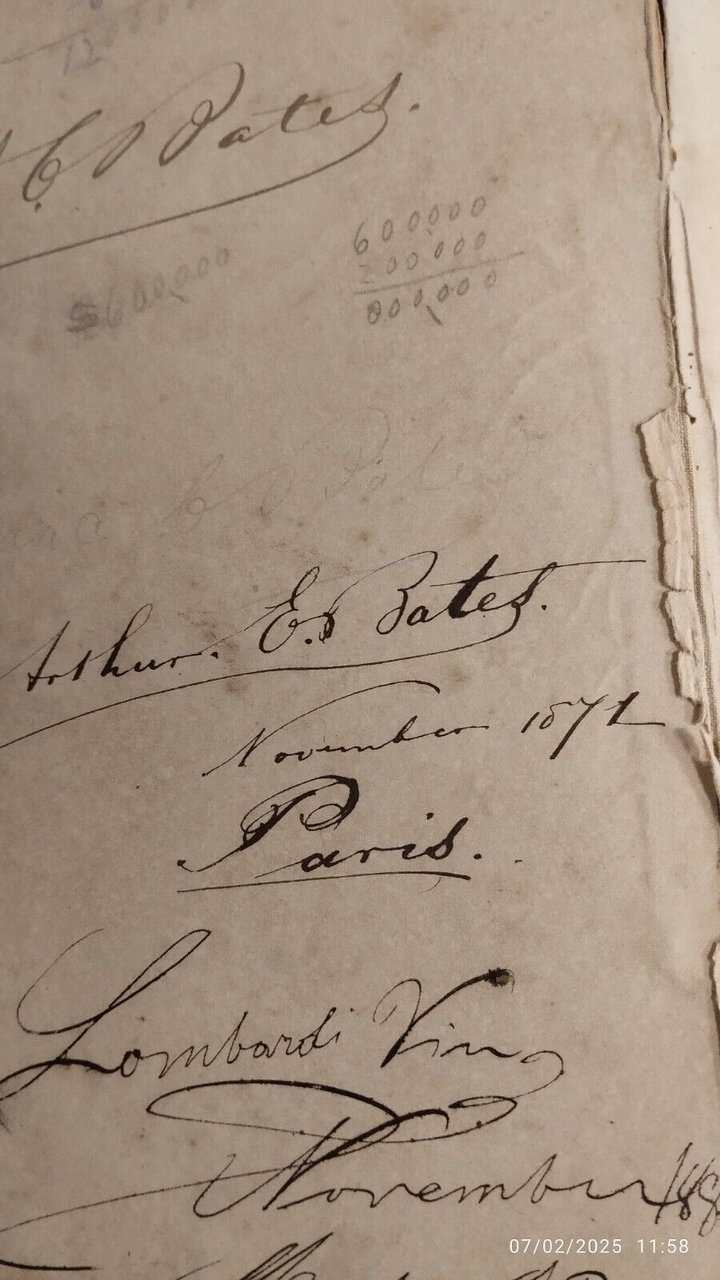 E Bates.
600000
600000
200000
800000
E Bates
Arthur. E. Bates.
November 1871
Paris.
Lombardi Vin
November 188
07/02/2025 11:58